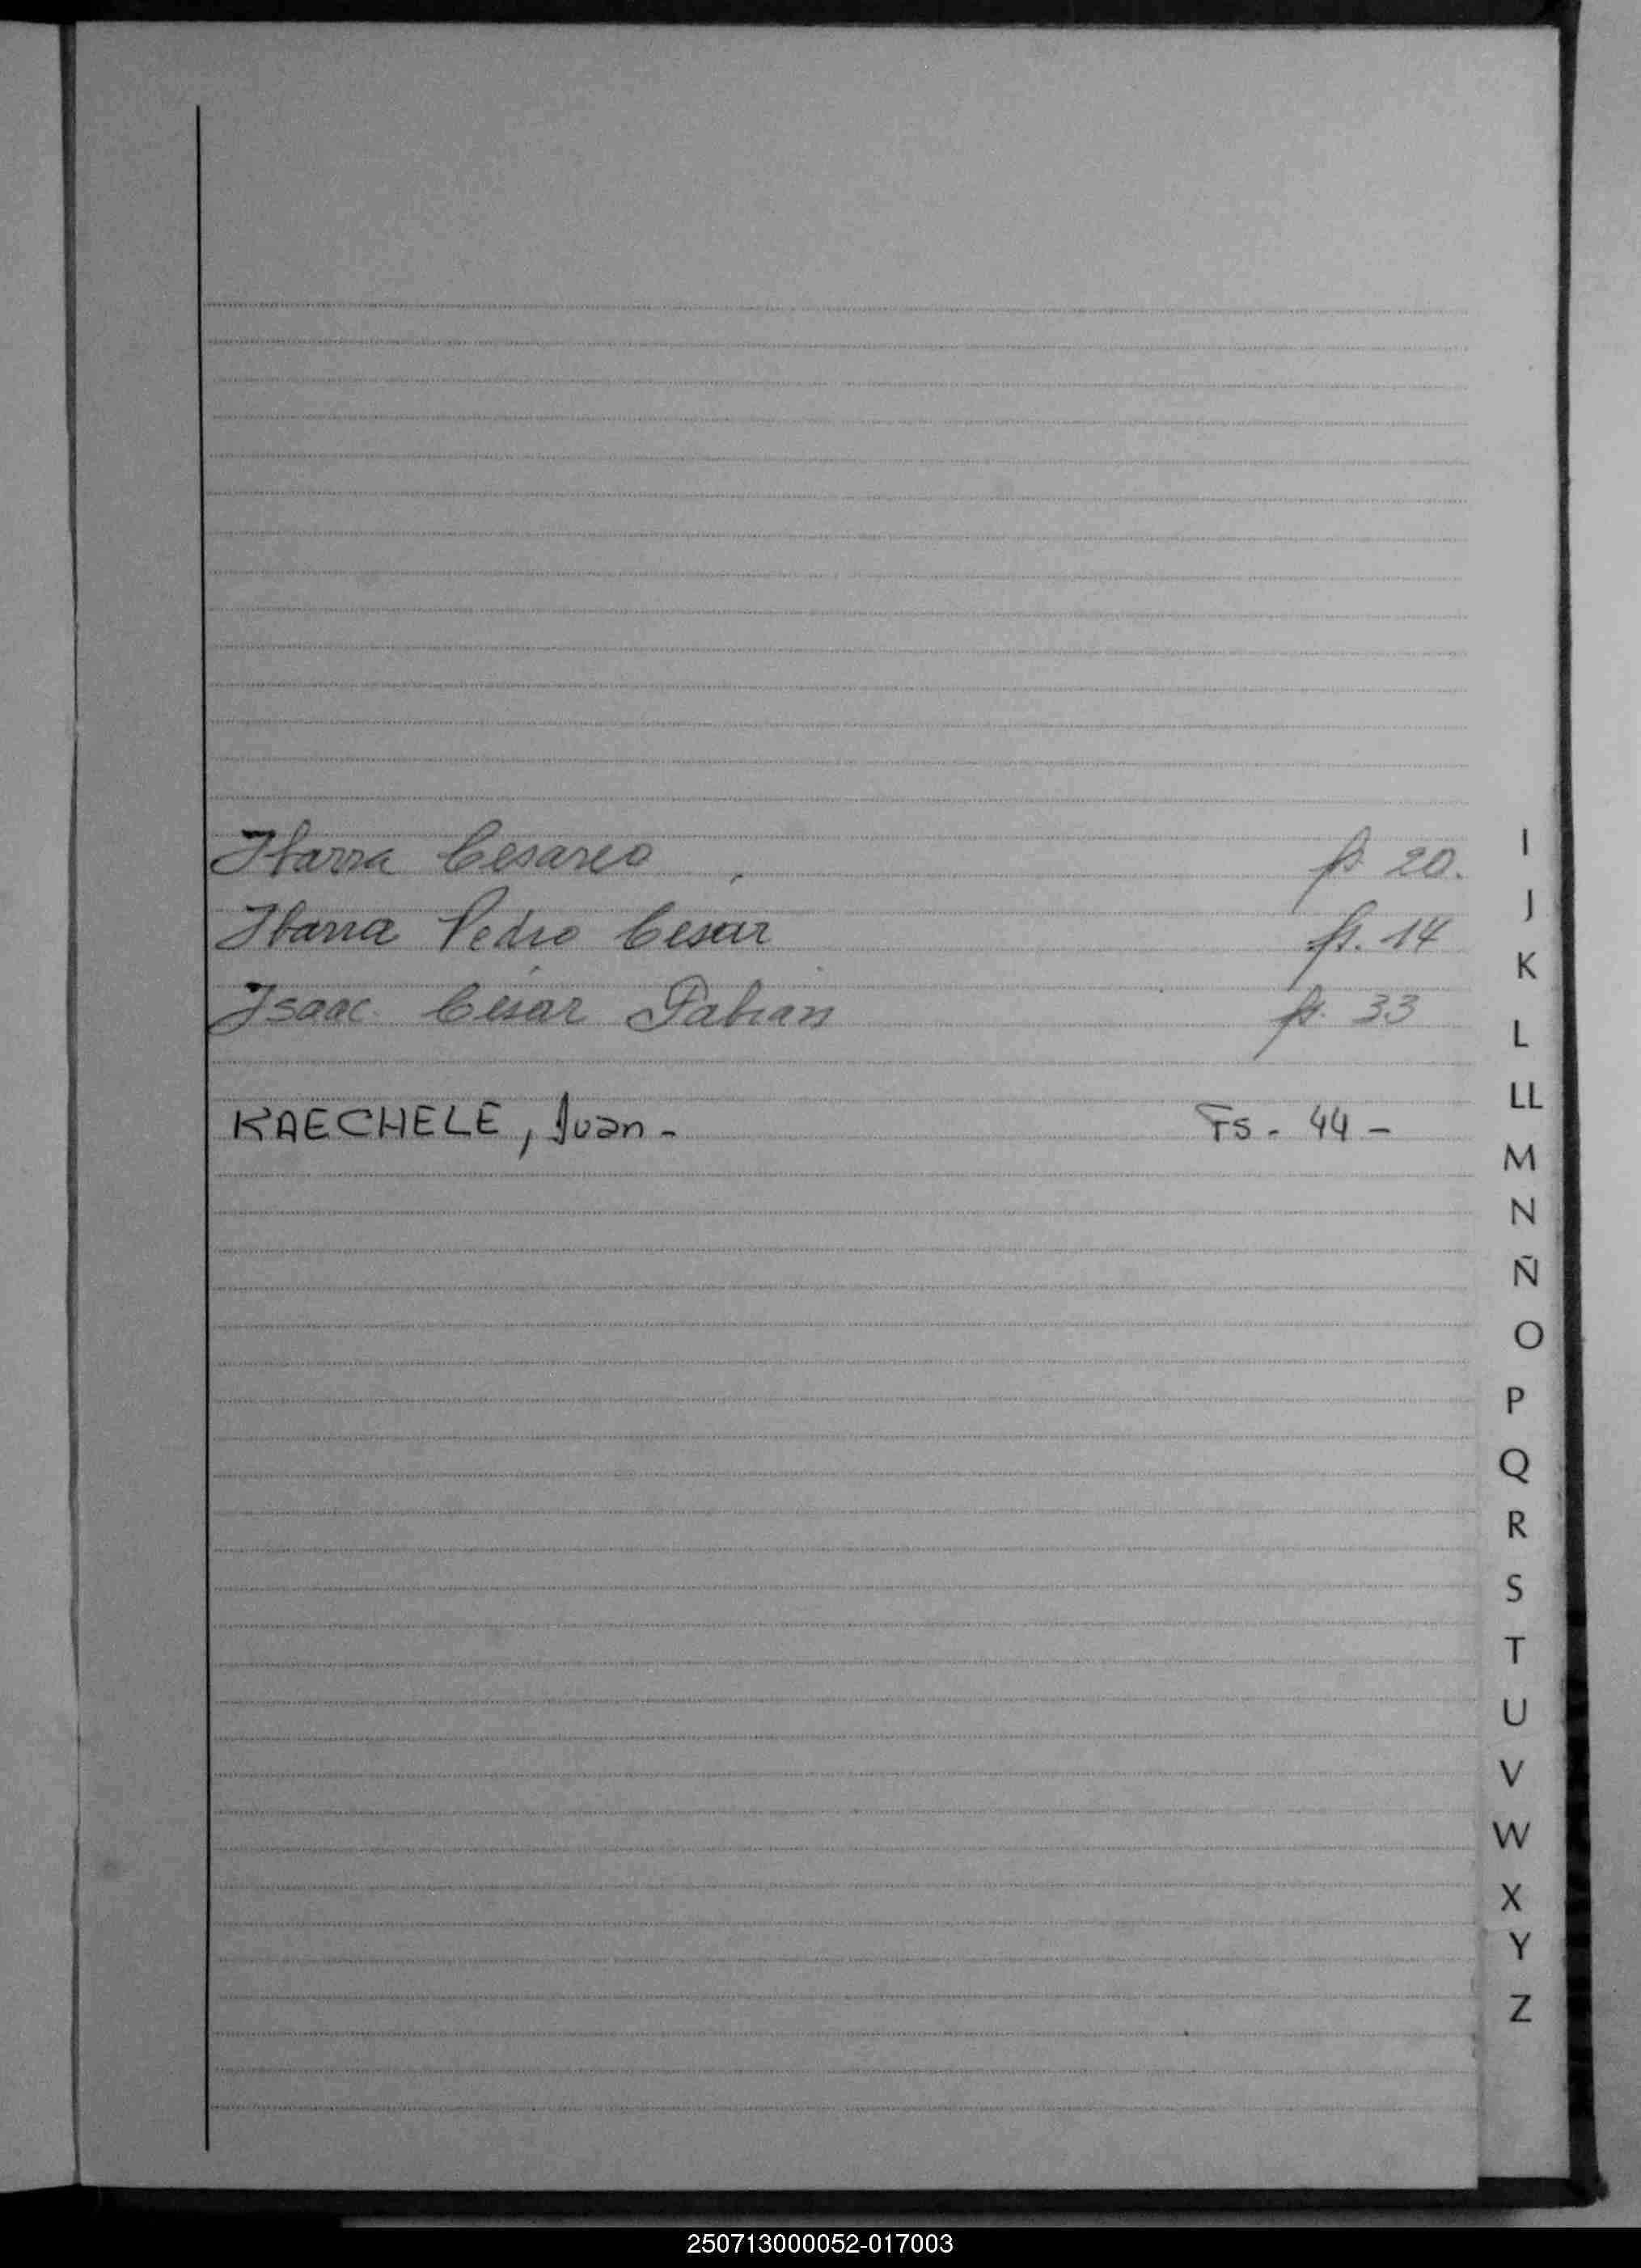 Ibarra Cesareo fs 20.
Ibarra Pedro Cesar fs. 14
Isaac César fs. 33
KAECHELE, Juan - Fs - 44 -
I
J
K
L
LL
M
N
Ñ
O
P
Q
R
S
T
U
V
W
X
Y
Z
250713000052-017003